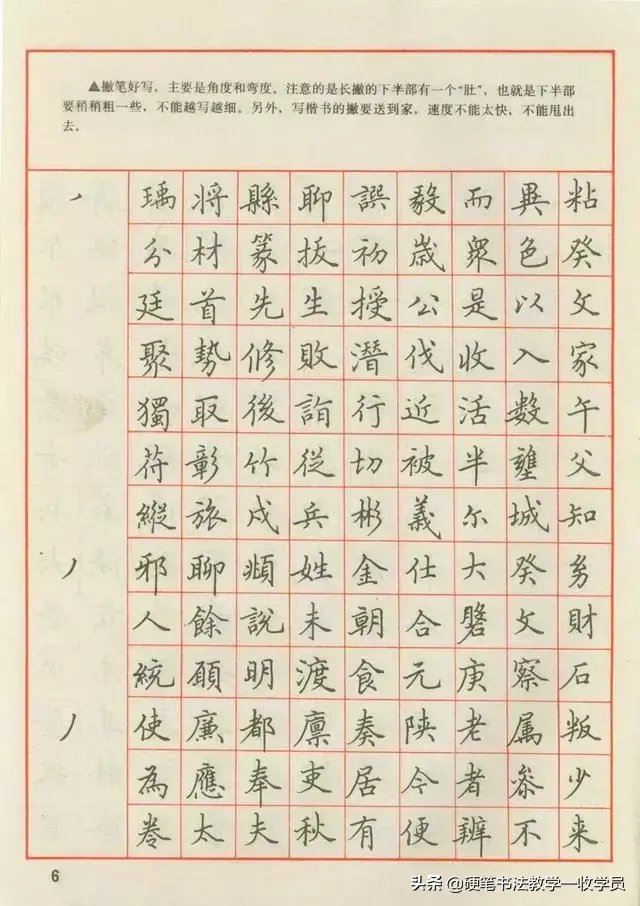 ▲撇笔好写，主要是角度和弯度。注意的是长撇的下半部有一个“肚”，也就是下半部
要稍稍粗一些，不能越写越细。另外，写楷书的撇要送到家，速度不能太快，不能甩出
去。
瑀將縣聊譔毅而異粘
分材篆拔初歲衆色癸
廷首先生授公是以文
聚勢修敗潛伐收入家
獨取後詣行近活數午
荷彰竹從切被半壅父
縱旅戍兵彬義尔城知
邪聊頫姓金仕大癸
人餘說未朝合文財
統願明渡食元庚察石
使廉都廪奏陝老属叛
為應奉吏居令者叅少
卷太夫秋有便辨不来
6
头条 @硬笔书法教学一收学员